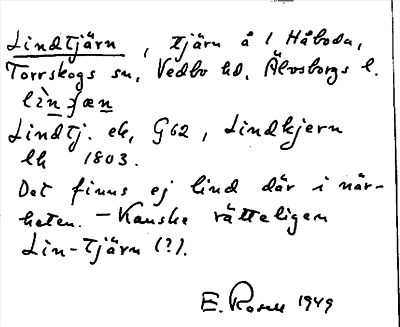 Lindtjärn, tjärn å 1 Håboda,
Torrskogs sn, Vedbo hd, Älvsborgs l.
Lindtj. ek, G62, Lindkjern
lh 1803.
Det finns ej lind där i när-
heten. - Kanske rätteligen
Lin-tjärn (?).
E. Rosell 1949